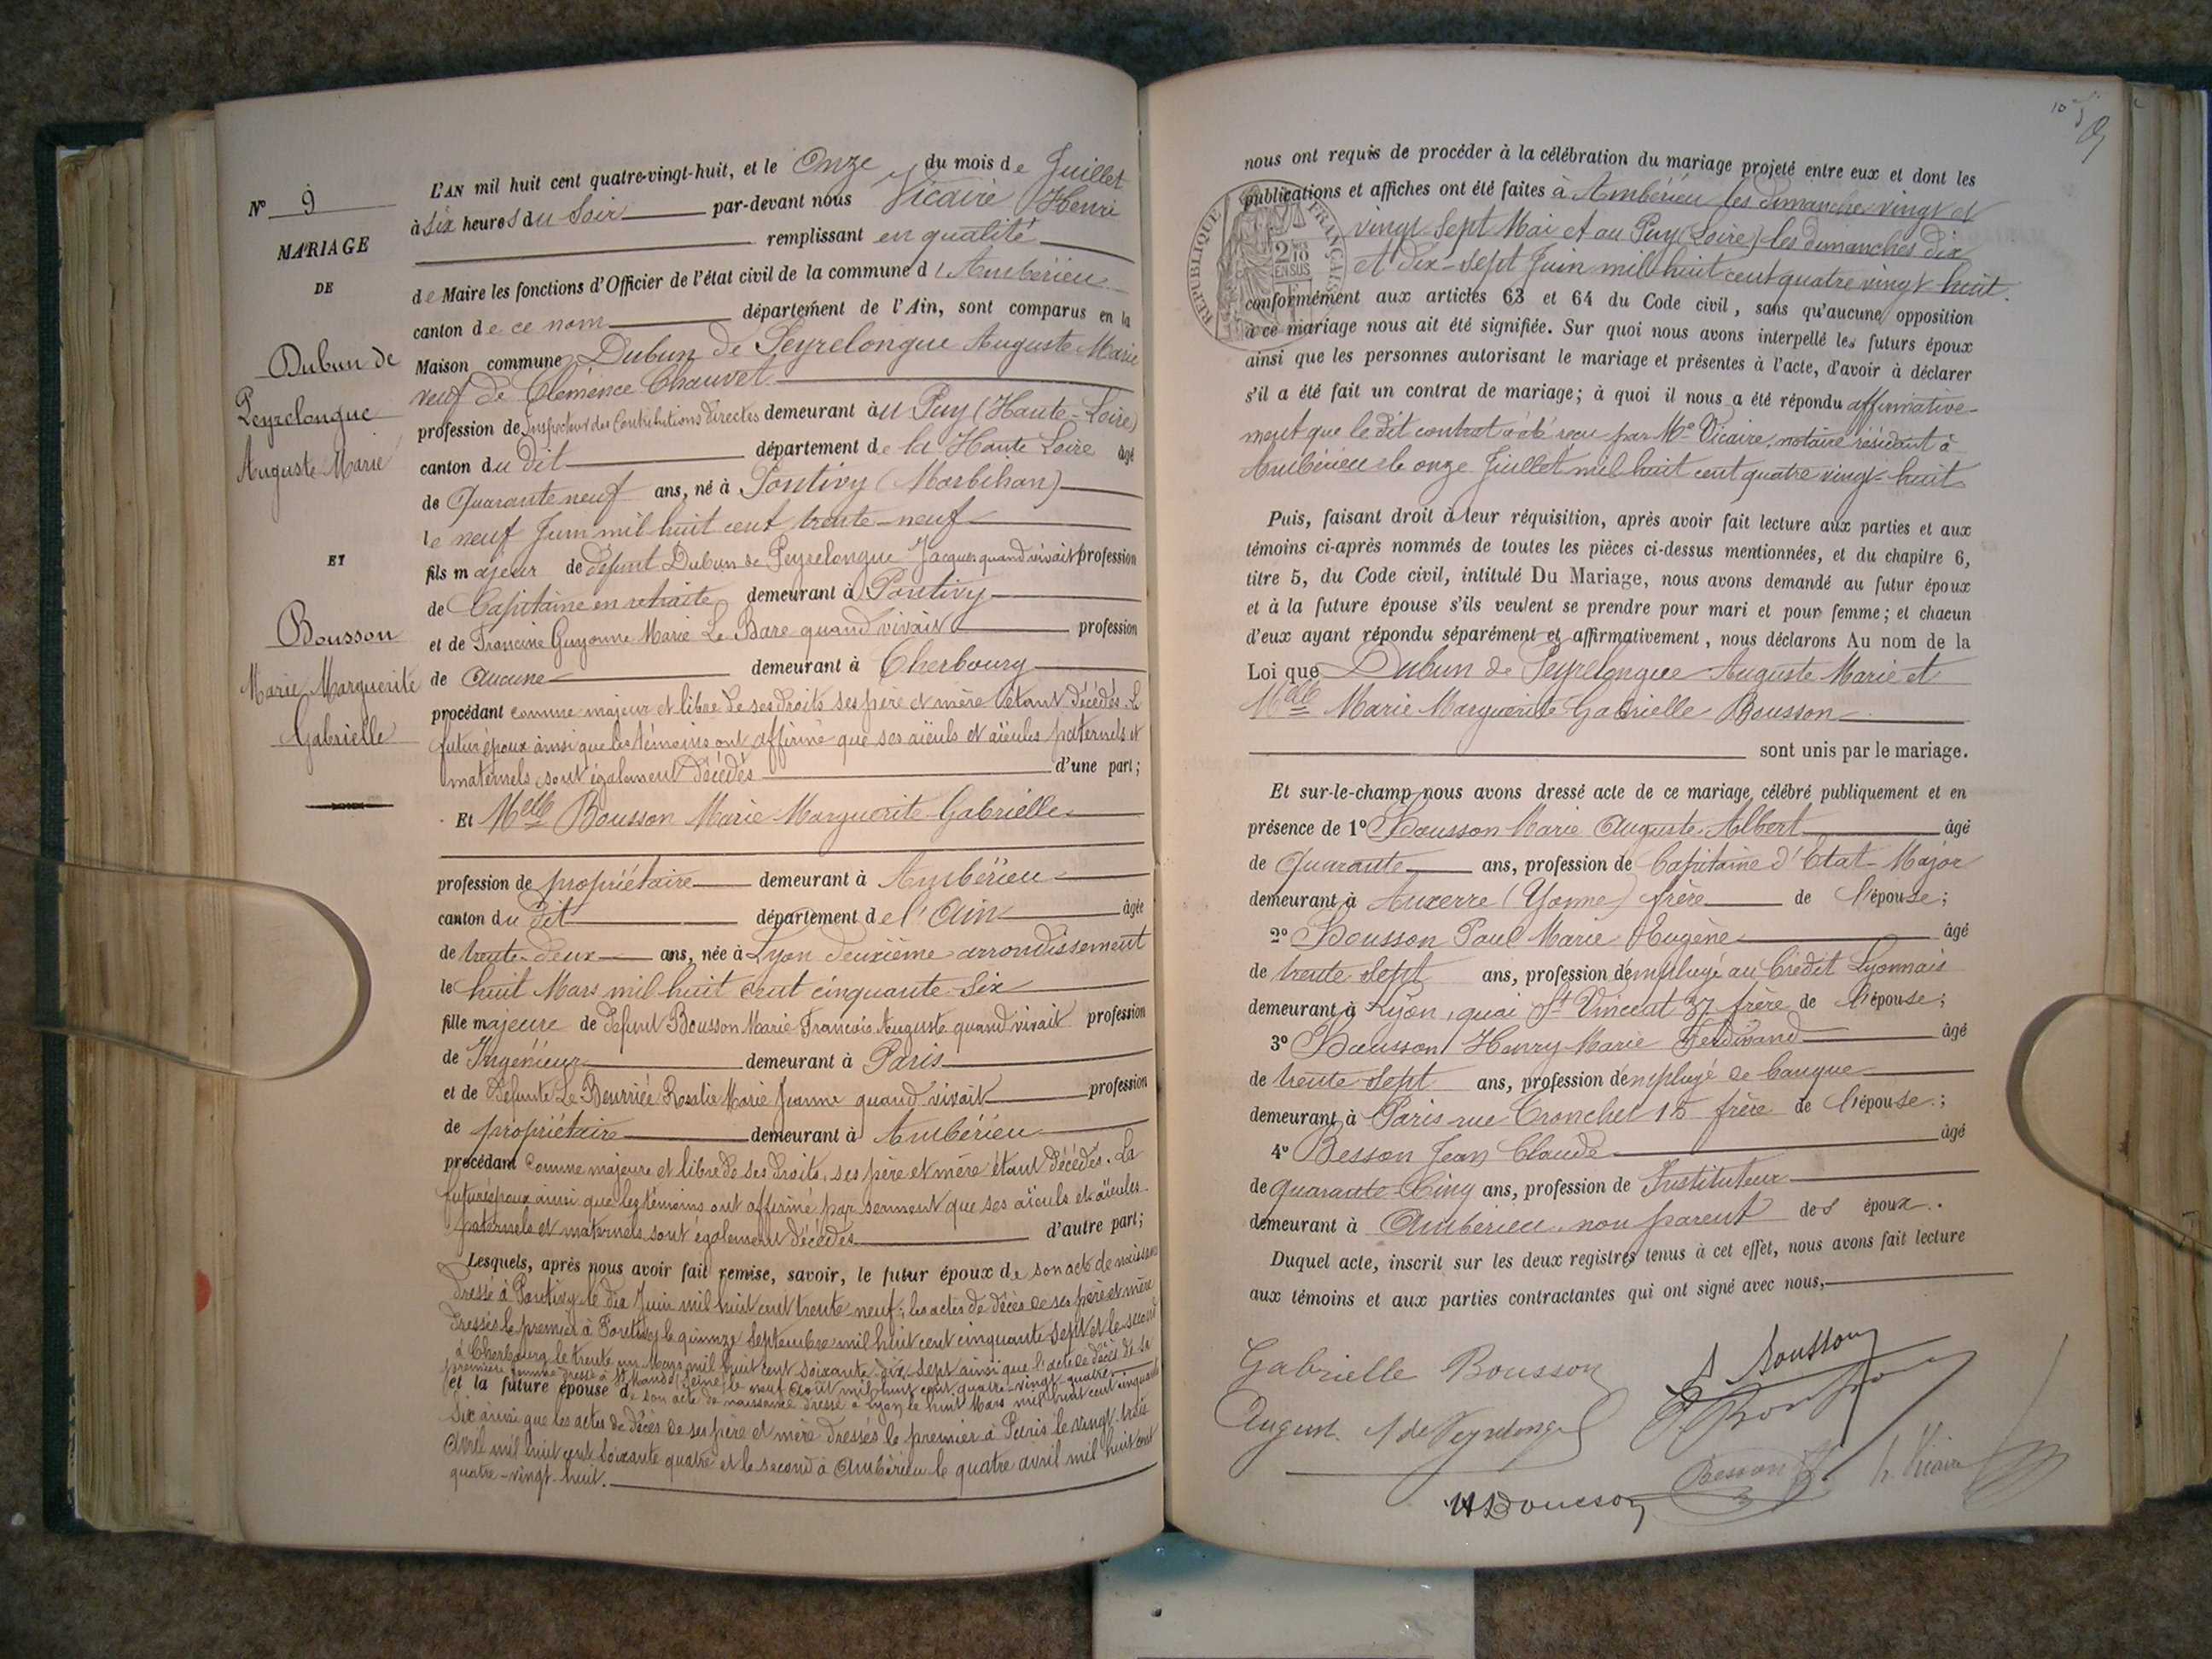 N° 9
MARIAGE
DE
Dubun de
Peyrelongue
Auguste Marie
ET
Bousson
Marie Marguerite
Gabrielle
L'AN mil huit cent quatre-vingt-huit, et le Onze du mois de Juillet
à six heures du Soir par-devant nous Vicaire Henri
remplissant en qualité
de Maire les fonctions d'Officier de l'état civil de la commune d'Ambérieu
canton de ce nom département de l'Ain, sont comparus en la
Maison commune Dubun de Peyrelongue Auguste Marie
veuf de Clémence Chauvet
profession de Inspecteur des Contributions Directes demeurant au Puy (Haute-Loire)
canton du dit département de la Haute Loire âgé
de Quarante neuf ans, né à Pontivy (Morbihan)
le neuf Juin mil huit cent trente-neuf
fils majeur de défunt Dubun de Peyrelongue Jacques quand vivait profession
de Capitaine en retraite demeurant à Pontivy
et de Francine Guyonne Marie Le Bare quand vivait profession
de Aucune demeurant à Cherbourg
procédant comme majeur et libre de ses droits ses père et mère étant décédés. Le
futur époux ainsi que les témoins ont affirmé que ses aïeuls et aïeules paternels et
maternels sont également décédés d'une part;
Et Melle Bousson Marie Marguerite Gabrielle
profession de propriétaire demeurant à Ambérieu
canton du dit département de l'Ain âgée
de trente-deux ans, née à Lyon deuxième arrondissement
le huit Mars mil huit cent cinquante-six
fille majeure de défunt Bousson Marie François Auguste quand vivait profession
de Ingénieur demeurant à Paris
et de Défunte Le Beurriée Rosalie Marie Jeanne quand vivait profession
de propriétaire demeurant à Ambérieu
procédant comme majeure et libre de ses droits, ses père et mère étant décédés. La
future époux ainsi que les témoins ont affirmé par serment que ses aïeuls et aïeules
paternels et maternels sont également décédés d'autre part;
Lesquels, après nous avoir fait remise, savoir, le futur époux de son acte de naissance
dressé à Pontivy le dix Juin mil huit cent trente neuf; les actes de décès de ses père et mère
dressés le premier à Pontivy le quinze Septembre mil huit cent cinquante sept et le second
à Cherbourg le trente un Mars mil huit cent soixante-dix-sept ainsi que l'acte de décès de sa
première femme dressé à St Mandé (Seine) le neuf Août mil huit cent quatre-vingt-quatre
et la future épouse de son acte de naissance dressé à Lyon le huit Mars mil huit cent cinquante
Six ainsi que les actes de décès de ses père et mère dressés le premier à Paris le vingt-trois
Avril mil huit cent soixante quatre et le second à Ambérieu le quatre avril mil huit cent
quatre-vingt-huit.
nous ont requis de procéder à la célébration du mariage projeté entre eux et dont les
publications et affiches ont été faites à Ambérieu les dimanches vingt et
vingt-sept Mai et au Puy (Loire) les dimanches dix
et dix-sept Juin mil huit cent quatre vingt huit.
RÉPUBLIQUE FRANÇAISE
2/10 EN SUS
conformément aux articles 63 et 64 du Code civil, sans qu'aucune opposition
à ce mariage nous ait été signifiée. Sur quoi nous avons interpellé les futurs époux
ainsi que les personnes autorisant le mariage et présentes à l'acte, d'avoir à déclarer
s'il a été fait un contrat de mariage; à quoi il nous a été répondu affirmative-
ment que le dit contrat a été reçu par Me Vicaire, notaire résidant à
Ambérieu le onze Juillet mil huit cent quatre vingt-huit
Puis, faisant droit à leur réquisition, après avoir fait lecture aux parties et aux
témoins ci-après nommés de toutes les pièces ci-dessus mentionnées, et du chapitre 6,
titre 5, du Code civil, intitulé Du Mariage, nous avons demandé au futur époux
et à la future épouse s'ils veulent se prendre pour mari et pour femme; et chacun
d'eux ayant répondu séparément et affirmativement, nous déclarons Au nom de la
Loi que Dubun de Peyrelongue Auguste Marie et
Melle Marie Marguerite Gabrielle Bousson
sont unis par le mariage.
Et sur-le-champ nous avons dressé acte de ce mariage, célébré publiquement et en
présence de 1° Bousson Marie Auguste Albert âgé
de Quarante ans, profession de Capitaine d'Etat-Major
demeurant à Auxerre (Yonne) frère de l'épouse;
2° Bousson Paul Marie Eugène âgé
de trente sept ans, profession d'employé au Crédit Lyonnais
demeurant à Lyon, quai St Vincent 37 frère de l'épouse;
3° Bousson Henry Marie Ferdinand âgé
de trente sept ans, profession d'employé de banque
demeurant à Paris rue Tronchet 15 frère de l'épouse;
4° Besson Jean Claude âgé
de quarante-cinq ans, profession de Instituteur
demeurant à Ambérieu non parent des époux.
Duquel acte, inscrit sur les deux registres tenus à cet effet, nous avons fait lecture
aux témoins et aux parties contractantes qui ont signé avec nous,
Gabrielle Bousson
A Bousson
August. de Peyrelongue
P. Bousson
Besson
h. Vicaire
H Bousson